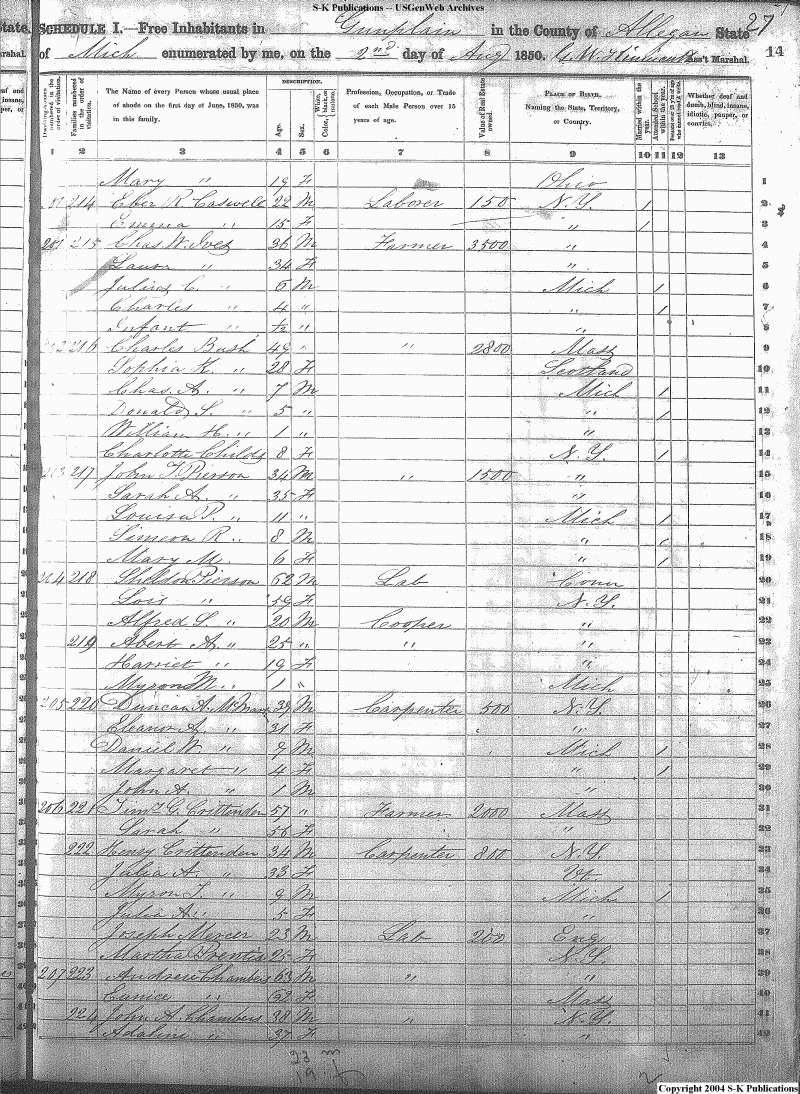 S-K Publications -- USGenWeb Archives
27
State,
SCHEDULE I.—Free Inhabitants in Gunplain in the County of Allegan State
of Mich enumerated by me, on the 2nd day of Aug 1850. Ass't Marshal. 14
Dwelling-houses numbered in the order of visitation.
Families numbered in the order of visitation.
The Name of every Person whose usual place of abode on the first day of June, 1850, was in this family.
DESCRIPTION.
Age.
Sex.
White, black, or mulatto. Color,
Profession, Occupation, or Trade of each Male Person over 15 years of age.
Value of Real Estate owned.
PLACE OF BIRTH. Naming the State, Territory, or Country.
Married within the year.
Attended School within the year.
Whether deaf and dumb, blind, insane, idiotic, pauper, or convict.
1 2 3 4 5 6 7 8 9 10 11 12 13
Mary " 19 F Ohio 1
214 Eber R. Caswell 22 M Laborer 150 N.Y. 1 2
Emma " 15 F " 1 3
201 215 Chas W. Ives 36 M Farmer 3500 " 4
Laura " 34 F " 5
Julius C. " 6 M Mich 1 6
Charles " 4 " " 1 7
Infant " ½ " " 8
216 Charles Bush 49 " " 2800 Mass 9
Sophia K. " 28 F Scotland 10
Chas. A. " 7 M Mich 1 11
Donald S. " 5 " " 1 12
William H. " 1 " " 13
Charlotte Childs 8 F N.Y. 1 14
217 John F. Pierson 34 M " 1500 " 15
Sarah A. " 35 F " 16
Louisa P. " 11 " Mich 1 17
Simeon R. " 8 M " 1 18
Mary M. " 6 F " 1 19
204 218 Sheldon Pierson 62 M Lab Conn 20
Lois " 59 F N.Y. 21
Alfred S " 20 M Cooper " 22
219 Abert A. " 25 " " " 23
Harriet " 19 F " 24
Myron M. " 1 " Mich 25
205 220 Duncan A. 39 M Carpenter 500 N.Y. 26
Eleanor A. " 31 F " 27
Daniel W. " 9 M Mich 1 28
Margaret " 4 F " 1 29
John A. " 1 M " 30
206 221 Timy G. Crittenden 57 " Farmer 2000 Mass 31
Sarah " 56 F " 32
222 Henry Crittenden 34 M Carpenter 800 N.Y. 33
Julia A. " 33 F Vt. 34
Myron F. " 9 M Mich 1 35
Julia A. " 5 F " 36
Joseph Mercer 23 M Lab 200 Eng 37
Martha Prentis 25 F N.Y. 38
207 223 Andrew Chambers 63 M " " 39
Eunice " 62 F Mass 40
224 John A. Chambers 38 M " N.Y. 41
Adaline " 37 F " 42
23 m
19 f
Copyright 2004 S-K Publications